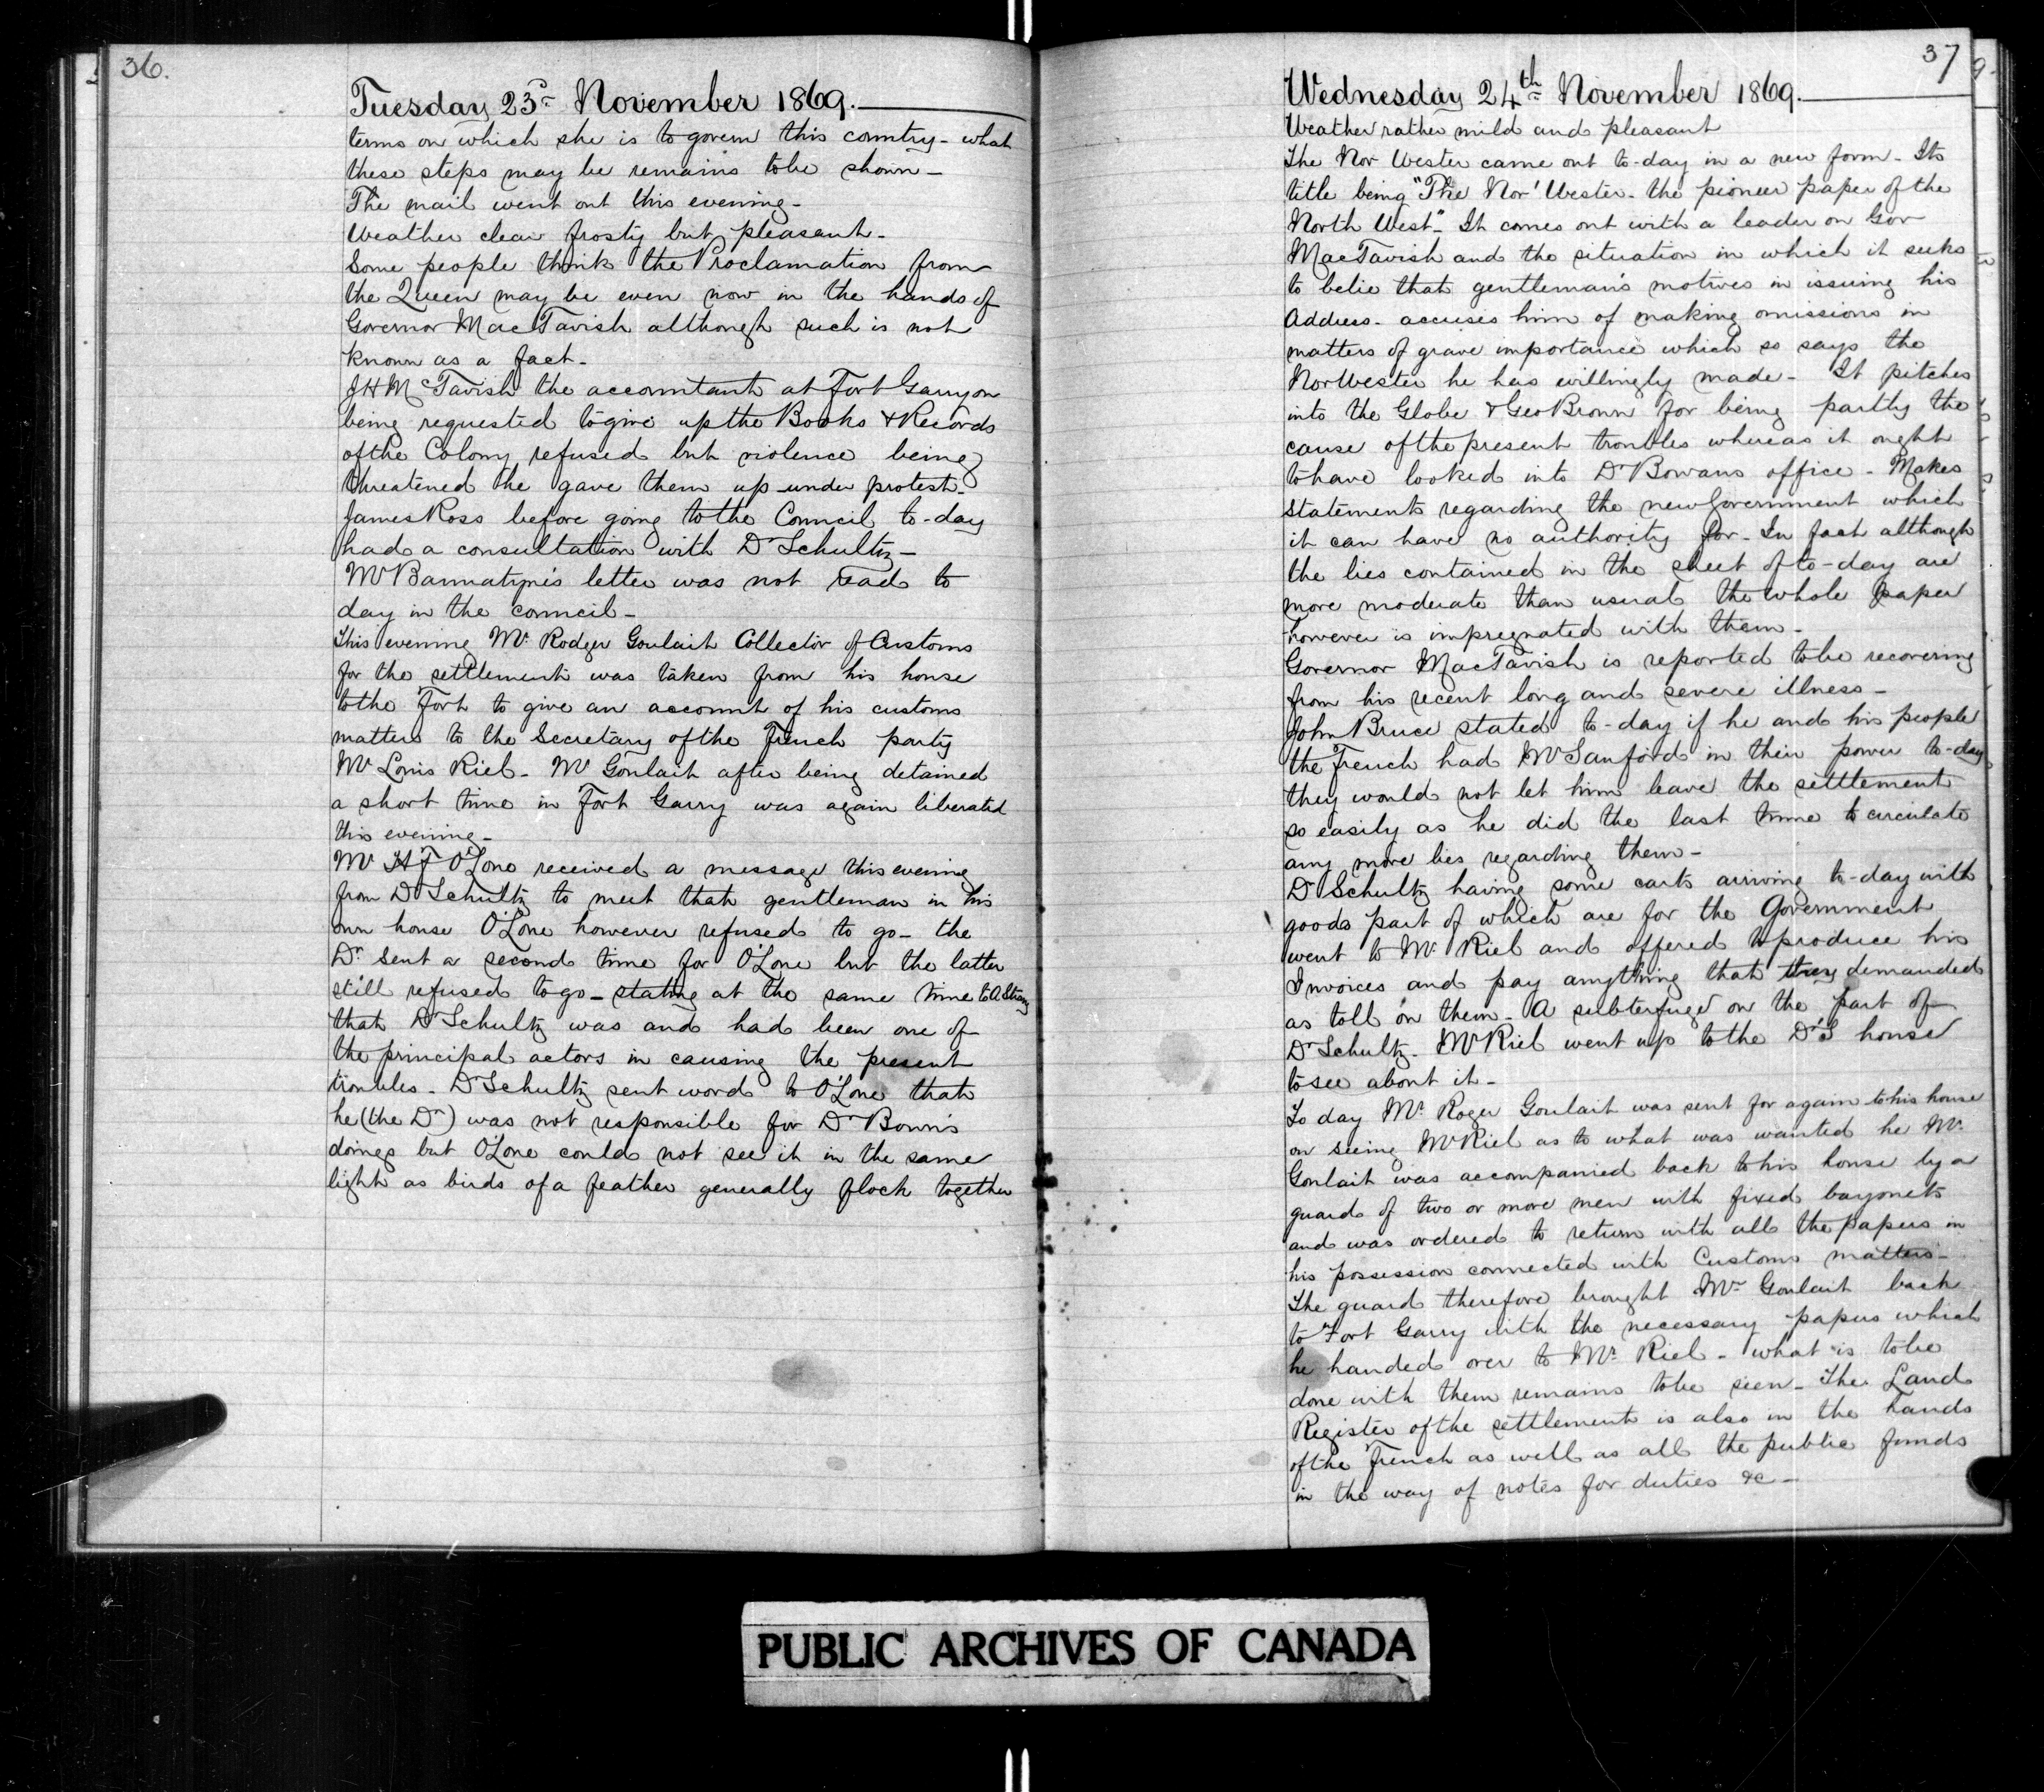 36.
Tuesday 23rd November 1869.
terms on which she is to govern this country - what
these steps may be remains to be shown -
The mail went out this evening -
Weather clear frosty but pleasant -
Some people think the Proclamation from
the Queen may be even now in the hands of
Governor MacTavish although such is not
known as a fact -
JH McTavish the accountant at Fort Garry on
being requested to give up the Books & Records
of the Colony refused but violence being
threatened he gave them up under protest -
James Ross before going to the Council to-day
had a consultation with Dr Schultz -
Mr Bannatyne's letter was not read to
day in the council -
This evening Mr. Rodger Goulait Collector of Customs
for the settlement was taken from his house
to the Fort to give an account of his customs
matters to the Secretary of the French party
Mr Louis Riel - Mr Goulait after being detained
a short time in Fort Garry was again liberated
this evening -
Mr HF O'Lone received a message this evening
from Dr Schultz to meet that gentleman in his
own house O'Lone however refused to go - the
Dr sent a second time for O'Lone but the latter
still refused to go - stating at the same time to A Strang
that Dr Schultz was and had been one of
the principal actors in causing the present
troubles - Dr Schultz sent word to O'Lone that
he (the Dr) was not responsible for Dr Bown's
doings but O'Lone could not see it in the same
light as birds of a feather generally flock together
37
Wednesday 24th November 1869.
Weather rather mild and pleasant
The Nor Wester came out to-day in a new form - Its
title being "The Nor' Wester - the pioneer paper of the
North West" - It comes out with a leader on Gov
MacTavish and the situation in which it seeks
to belie that gentleman's motives in issuing his
Address - accuses him of making omissions in
matters of grave importance which so says the
NorWester he has willingly made - It pitches
into the Globe & Geo Brown for being partly the
cause of the present troubles whereas it ought
to have looked into Dr Bowans office - Makes
statements regarding the new Government which
it can have no authority for - In fact although
the lies contained in the sheet of to-day are
more moderate than usual the whole paper
however is impregnated with them -
Governor MacTavish is reported to be recovering
from his recent long and severe illness -
John Bruce stated to-day if he and his people
the French had Mr Sanford in their power to-day
they would not let him leave the settlement
so easily as he did the last time to circulate
any more lies regarding them -
Dr Schultz having some carts arriving to-day with
goods part of which are for the Government
went to Mr Riel and offered to produce his
Invoices and pay anything that they demanded
as toll on them - A subterfuge on the part of
Dr Schultz - Mr Riel went up to the Dr's house
to see about it -
To day Mr Roger Goulait was sent for again to his house
on seeing Mr Riel as to what was wanted he Mr
Goulait was accompanied back to his house by a
guard of two or more men with fixed bayonets
and was ordered to return with all the papers in
his possession connected with Customs matters -
The guard therefore brought Mr Goulait back
to Fort Garry with the necessary papers which
he handed over to Mr Riel - what is to be
done with them remains to be seen - The Land
Register of the settlement is also in the hands
of the French as well as all the public funds
in the way of notes for duties &c -
PUBLIC ARCHIVES OF CANADA